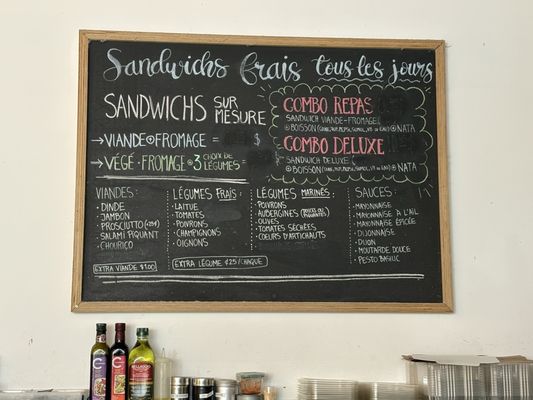 Sandwichs frais tous les jours
SANDWICHS SUR MESURE
VIANDE + FROMAGE = $
VÉGÉ-FROMAGE + 3 CHOIX DE LÉGUMES =
COMBO REPAS
SANDWICH VIANDE-FROMAGE
+ BOISSON + NATA
COMBO DELUXE
SANDWICH DELUXE
+ BOISSON + NATA
VIANDES:
• DINDE
• JAMBON
• PROSCIUTTO
• SALAMI PIQUANT
• CHOURICO
EXTRA VIANDE
LÉGUMES FRAIS:
• LAITUE
• TOMATES
• POIVRONS
• CHAMPIGNONS
• OIGNONS
EXTRA LÉGUME ¢25/CHAQUE
LÉGUMES MARINÉS:
• POIVRONS
• AUBERGINES
• OLIVES
• TOMATES SÉCHÉES
• COEURS D'ARTICHAUTS
SAUCES:
• MAYONNAISE
• MAYONNAISE À L'AIL
• MAYONNAISE ÉPICÉE
• DIJONNAISE
• DIJON
• MOUTARDE DOUCE
• PESTO BASILIC